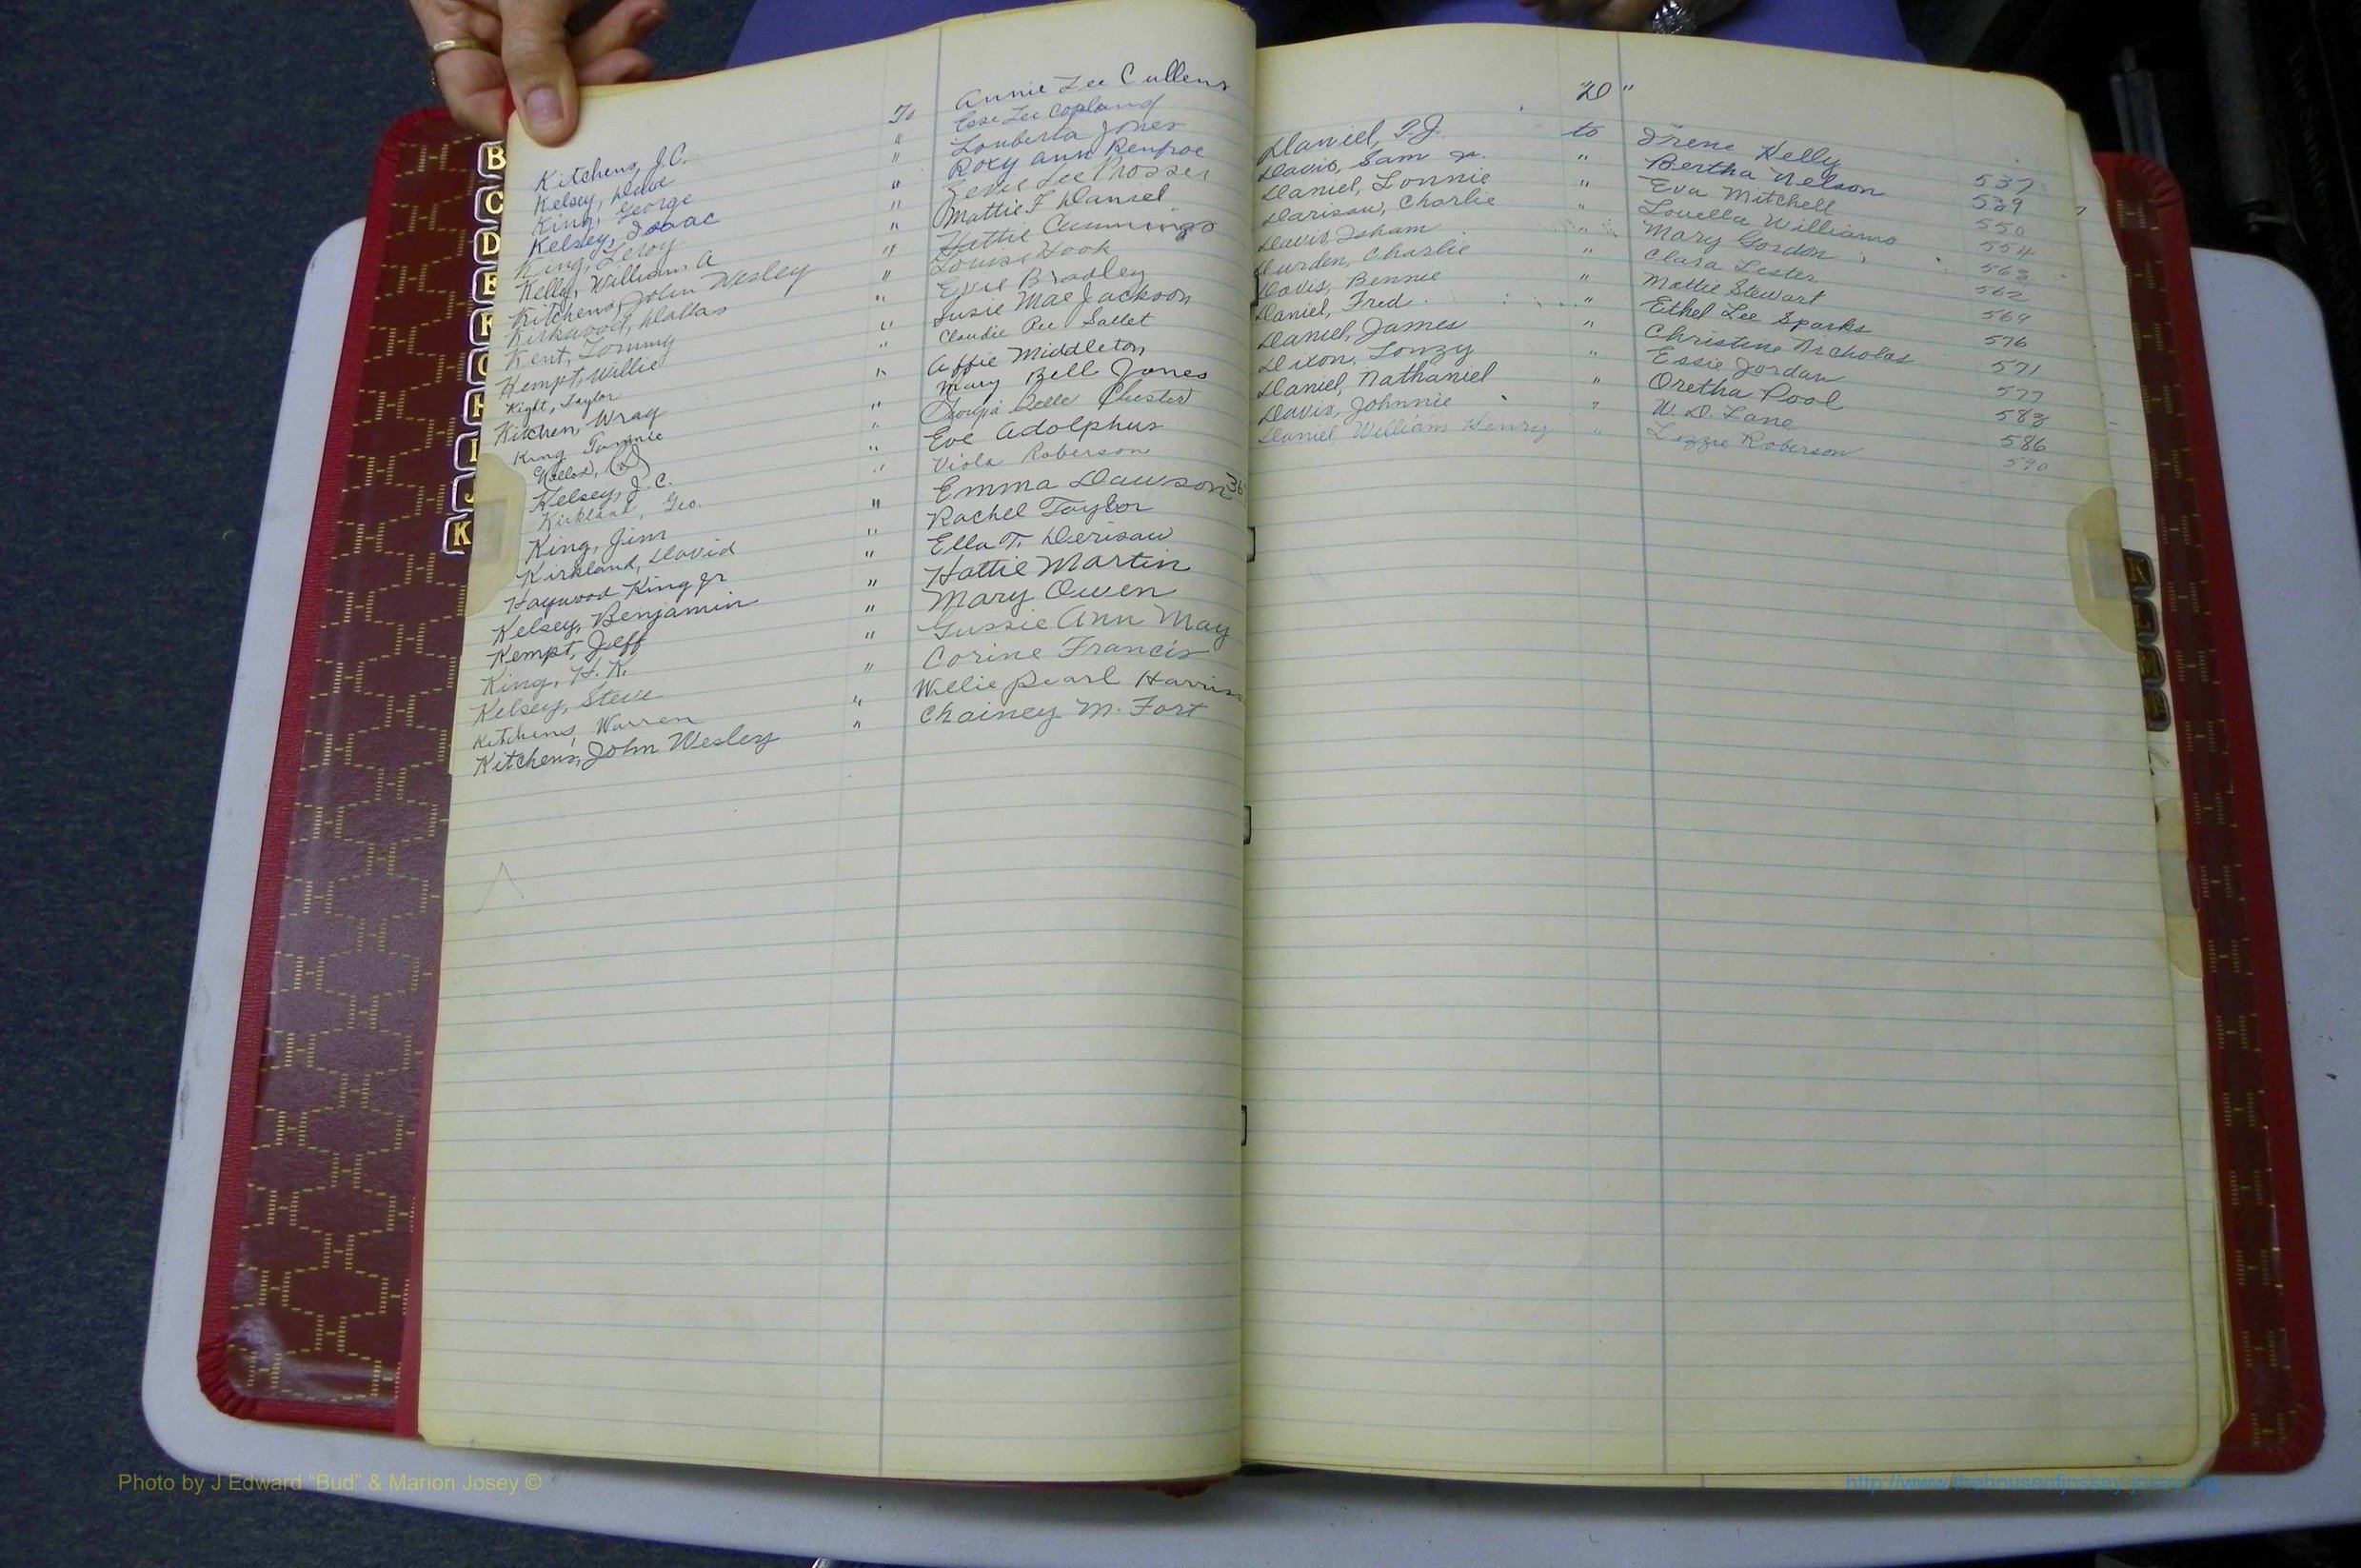 To Annie Lee Cullens
Kitchens, J.C. " Essie Lee Copland
Kelsey, Dave " Louberta Jones
King, George " Roxy Ann Renfroe
Kelsey, Isaac " Lee Prosser
King, Leroy " Mattie F Daniel
Kelly, William A " Hattie Cummings
Kitchens, John Wesley " Louise Hook
Kirkwood, Dallas " Evie Bradley
Kent, Tommy " Susie Mae Jackson
Kempt, Willie " Claudie Sallet
Kight, Taylor " Affie Middleton
Kitchen Wray " Mary Bell Jones
King Tommie " Georgia Belle Chester
" Eve Adolphus
Kelsey, J.C. " Viola Roberson
Kirkland, Geo. Emma Dawson 36
King, Jim " Rachel Taylor
Kirkland, David " Ella T. Derisaw
Haywood King Jr " Hattie Martin
Kelsey, Benjamin " Mary Owen
Kempt, Jeff " Gussie Ann May
King, H.K. " Corine Francis
Kelsey, Steve Willie Pearl Harris
Kitchens, Warren " Chainey M. Fort
Kitchens, John Wesley "
"D"
Daniel, T.J. to Irene Kelly 537
Davis, Sam Jr. " Bertha Nelson 539
Daniel, Lonnie " Eva Mitchell 550
Darisaw, Charlie " Louella Williams 554
Davis, Isham " Mary Gordon 563
Durden, Charlie " Clara Lester 562
Davis, Bennie " Mattie Stewart 569
Daniel, Fred " Ethel Lee Sparks 576
Daniel, James " Christine Nicholas 571
Dixon, Lonzy " Essie Jordan 577
Daniel, Nathaniel " Oretha Pool 583
Davis, Johnnie " W.D. Lane 586
Daniel William Henry " Lizzie Roberson 590
B
C
D
E
F
G
H
I
J
K
Photo by J Edward “Bud” & Marion Josey ©
http://www.thehouseofjossey-josey.org